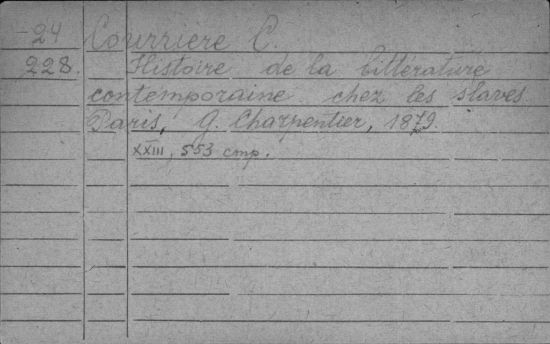 24 Courriere C.
228. Histoire de la littérature
contemporaine chez les slaves.
Paris, G. Charpentier, 1879.
XXIII, 553 cmp.